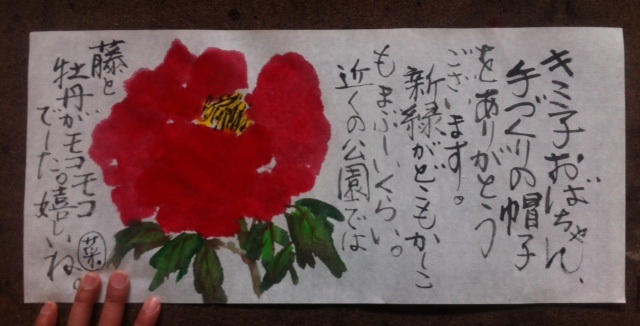 キミ子おばちゃん、
手づくりの帽子
をありがとう
ございます。
新緑がどこもかしこ
もまぶしいくらい。
近くの公園では
藤と
牡丹がモコモコ
でした。嬉しいね。
菜